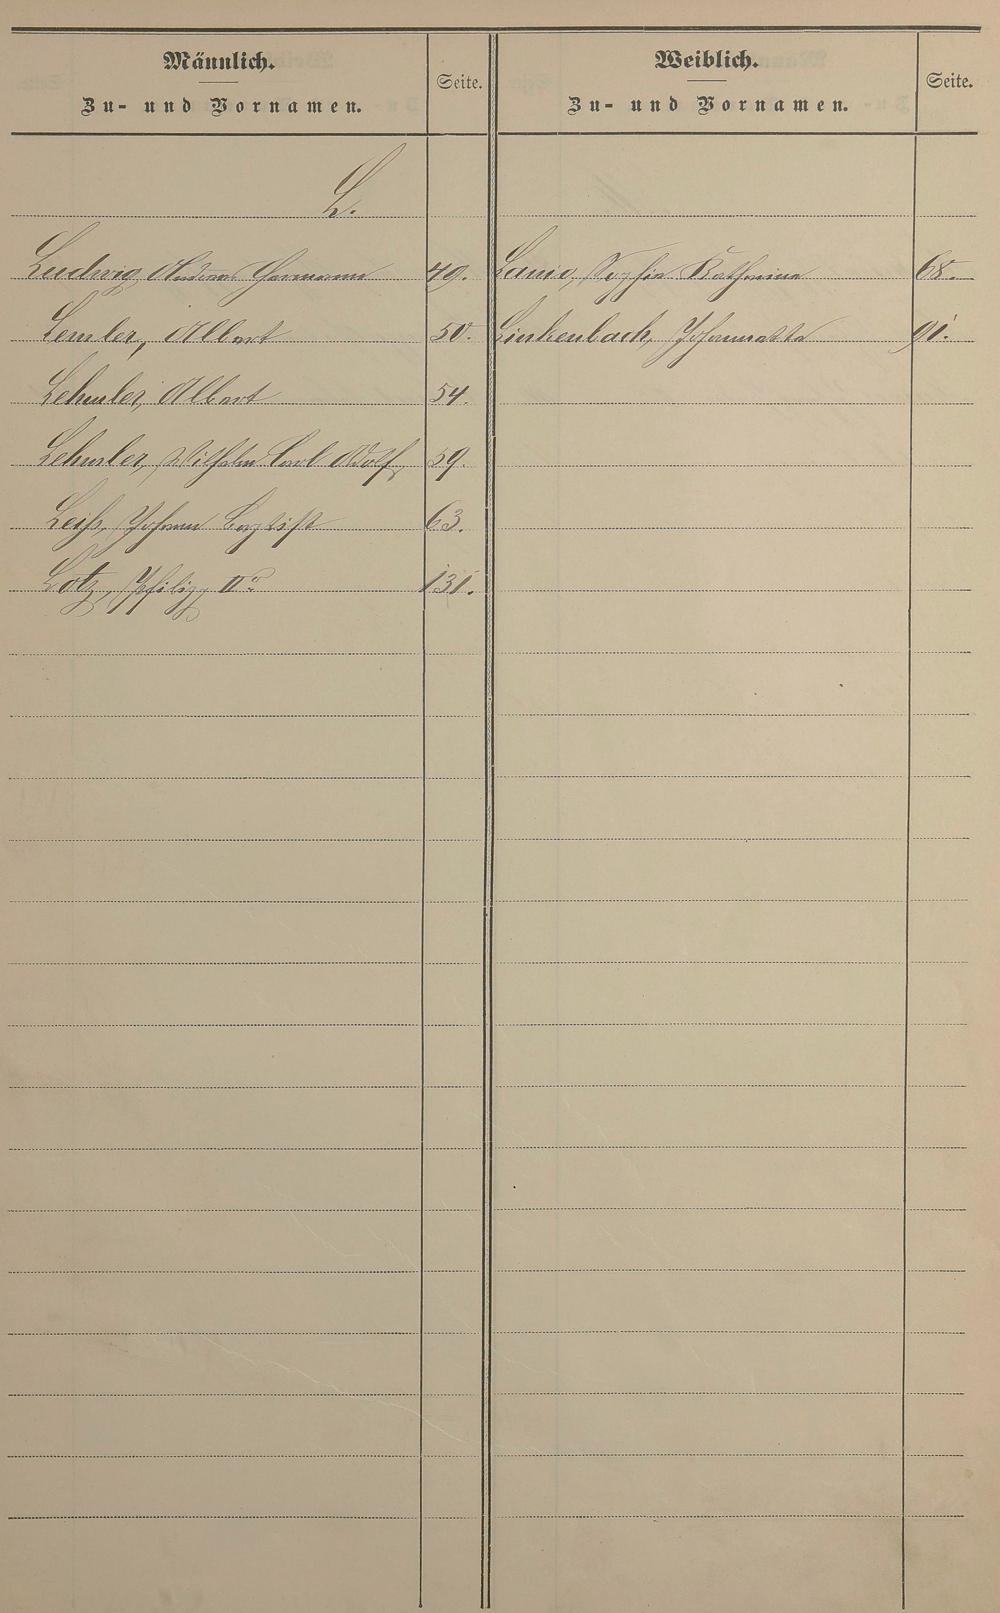 Männlich.
Zu- und Vornamen.
Seite.
Weiblich.
Zu- und Vornamen.
Seite.
L.
Ludwig, Andreas Hermann 49.
Lemler, Albert 50.
Lehmler, Albert 54.
Lehmler, Wilhelm Carl Adolf 59.
Leiß, Johann Baptist 63.
Lotz, Philipp II. 131.
Sophie Katharine 68.
Linkenbach, Johannette 91.